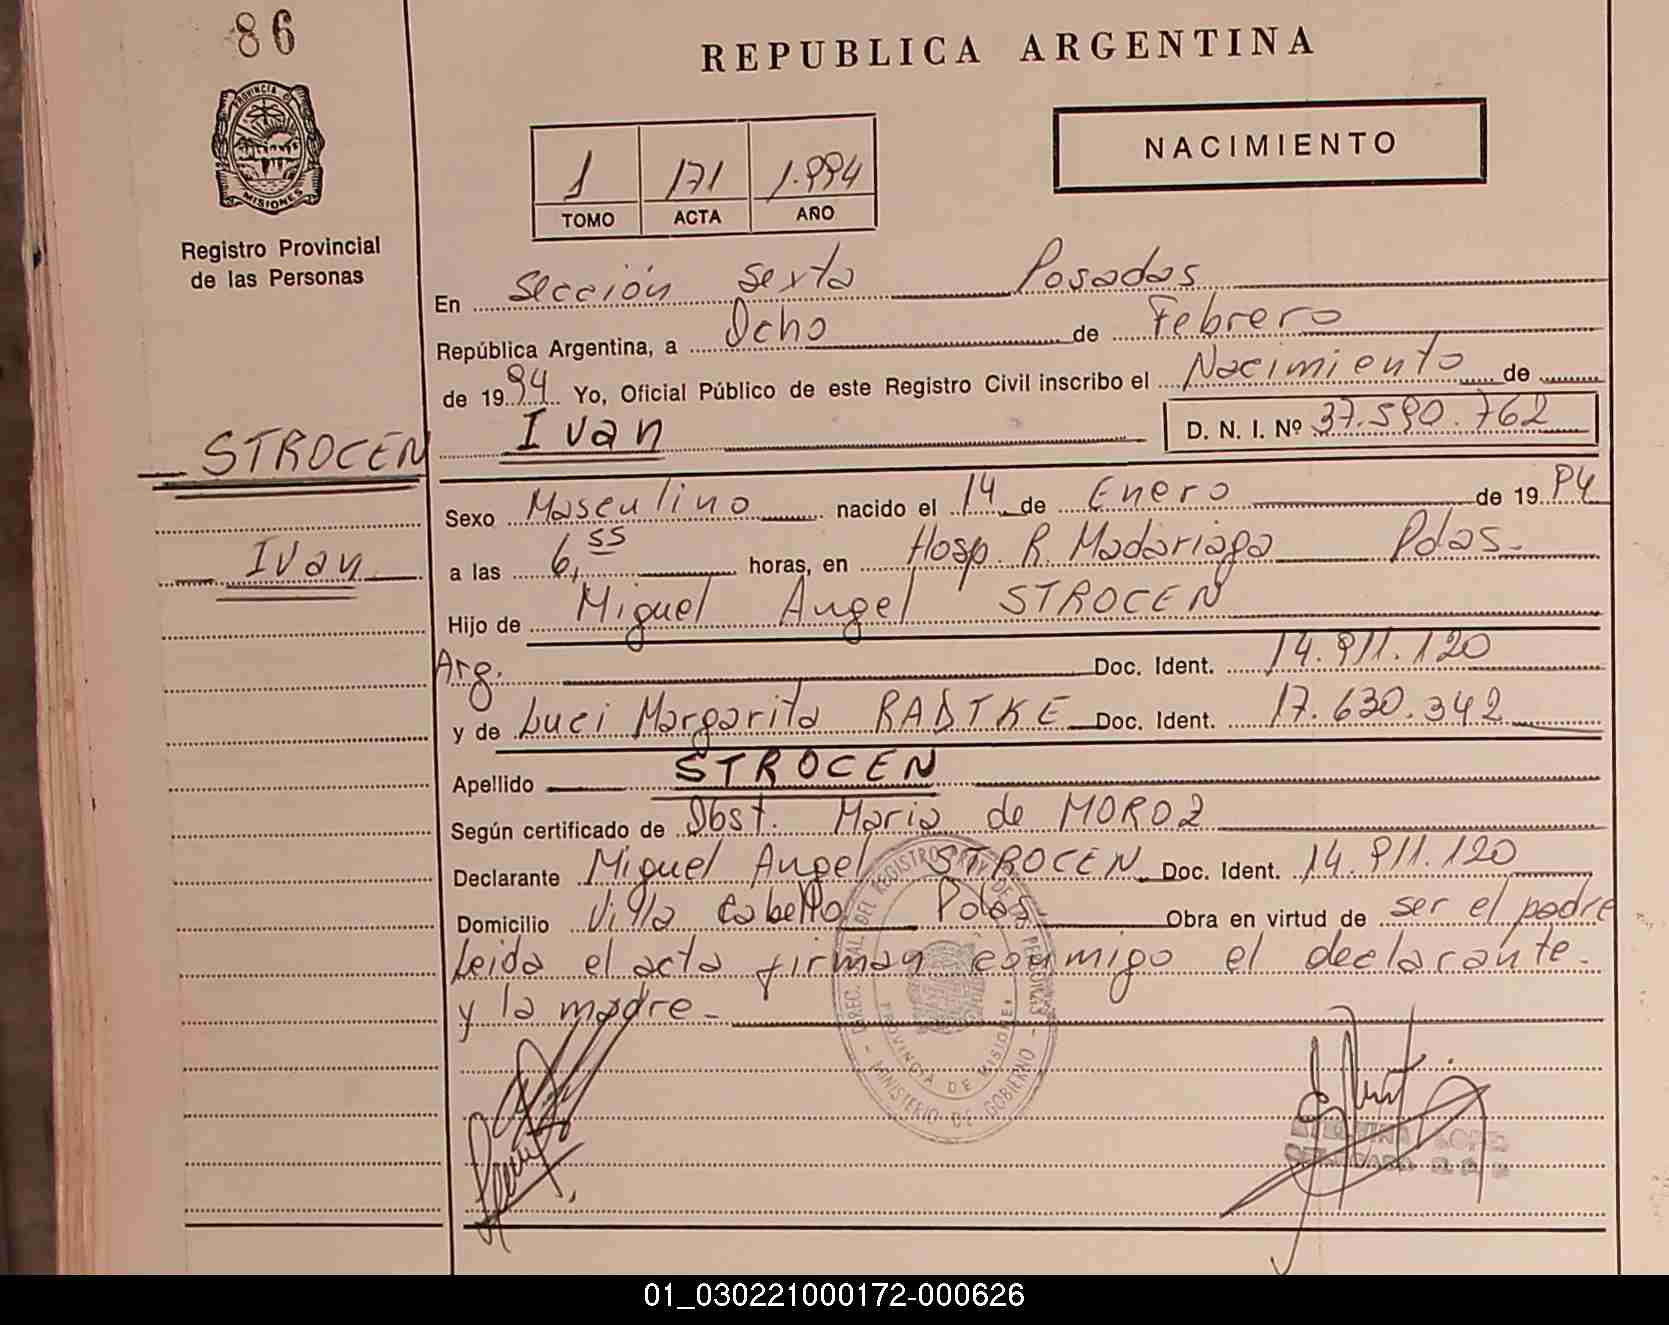 86
REPUBLICA ARGENTINA
PROVINCIA DE
MISIONES
Registro Provincial
de las Personas
1 171 1.994
TOMO ACTA AÑO
NACIMIENTO
En Sección Sexta Posadas
República Argentina, a Ocho de Febrero
de 1994 Yo, Oficial Público de este Registro Civil inscribo el Nacimiento de
STROCEN Ivan D. N. I. Nº 37.590.762
Sexo Masculino nacido el 14 de Enero de 1994
Ivan
a las 6,55 horas, en Hosp. R. Madariaga Pdas.
Hijo de Miguel Angel STROCEN
Arg. Doc. Ident. 14.911.120
y de Luci Margarita RADTKE Doc. Ident. 17.630.342
Apellido STROCEN
Según certificado de Obst. Maria de MOROZ
Declarante Miguel Angel STROCEN Doc. Ident. 14.911.120
Domicilio Villa Cabello Pdas Obra en virtud de ser el padre
Leida el acta firman conmigo el declarante
y la madre
DIREC. GRAL DEL REGISTRO PROV. DE LAS PERSONAS
PROVINCIA DE MISIONES
MINISTERIO DE GOBIERNO
LOPEZ
01_030221000172-000626